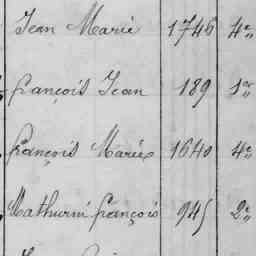 Jean Marie 1746 4e
françois Jean 189 1er
françois Marie 1640 4e
Mathurin françois 945 2e